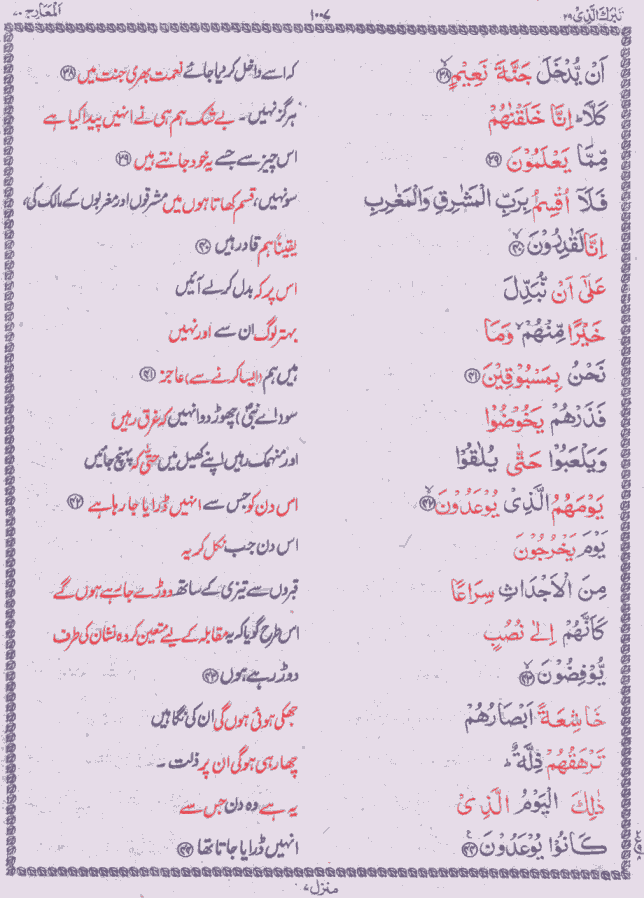 تبرک الذی ۲۹ ۱۰۰۷ المعارج ۷۰
اَنْ یُّدْخَلَ جَنَّةَ نَعِیْمٍ ﴿۳۸﴾ کہ اسے داخل کر دیا جائے نعمت بھری جنت میں ﴿۳۸﴾
کَلَّا ؕ اِنَّا خَلَقْنٰهُمْ ہرگز نہیں۔ بے شک ہم ہی نے انہیں پیدا کیا ہے
مِّمَّا یَعْلَمُوْنَ ﴿۳۹﴾ اس چیز سے جسے یہ خود جانتے ہیں ﴿۳۹﴾
فَلَاۤ اُقْسِمُ بِرَبِّ الْمَشٰرِقِ وَالْمَغٰرِبِ سو نہیں، قسم کھاتا ہوں میں مشرقوں اور مغربوں کے مالک کی،
اِنَّا لَقٰدِرُوْنَ ﴿۴۰﴾ یقیناً ہم قادر ہیں ﴿۴۰﴾
عَلٰۤی اَنْ نُّبَدِّلَ اس پر کہ بدل کر لے آئیں
خَیْرًا مِّنْهُمْ ۙ وَمَا بہتر لوگ ان سے اور نہیں
نَحْنُ بِمَسْبُوْقِیْنَ ﴿۴۱﴾ ہیں ہم (ایسا کرنے سے) عاجز ﴿۴۱﴾
فَذَرْهُمْ یَخُوْضُوْا سو (اے نبیؐ) چھوڑ دو انہیں کہ غرق رہیں
وَیَلْعَبُوْا حَتّٰی یُلٰقُوْا اور منہمک رہیں اپنے کھیل میں حتّٰی کہ پہنچ جائیں
یَوْمَهُمُ الَّذِیْ یُوْعَدُوْنَ ﴿۴۲﴾ اس دن کو جس سے انہیں ڈرایا جا رہا ہے ﴿۴۲﴾
یَوْمَ یَخْرُجُوْنَ اس دن جب نکل کر یہ
مِنَ الْاَجْدَاثِ سِرَاعًا قبروں سے تیزی کے ساتھ دوڑے جا رہے ہوں گے
کَاَنَّهُمْ اِلٰی نُصُبٍ اس طرح گویا کہ یہ مقابلہ کے لیے متعین کردہ نشان کی طرف
یُّوْفِضُوْنَ ﴿۴۳﴾ دوڑ رہے ہوں ﴿۴۳﴾
خَاشِعَةً اَبْصَارُهُمْ جھکی ہوئی ہوں گی ان کی نگاہیں
تَرْهَقُهُمْ ذِلَّةٌ ؕ چھا رہی ہوگی ان پر ذلت ۔
ذٰلِكَ الْیَوْمُ الَّذِیْ یہ ہے وہ دن جس سے
کَانُوْا یُوْعَدُوْنَ ﴿۴۴﴾ انہیں ڈرایا جاتا تھا ﴿۴۴﴾
منزل ۷